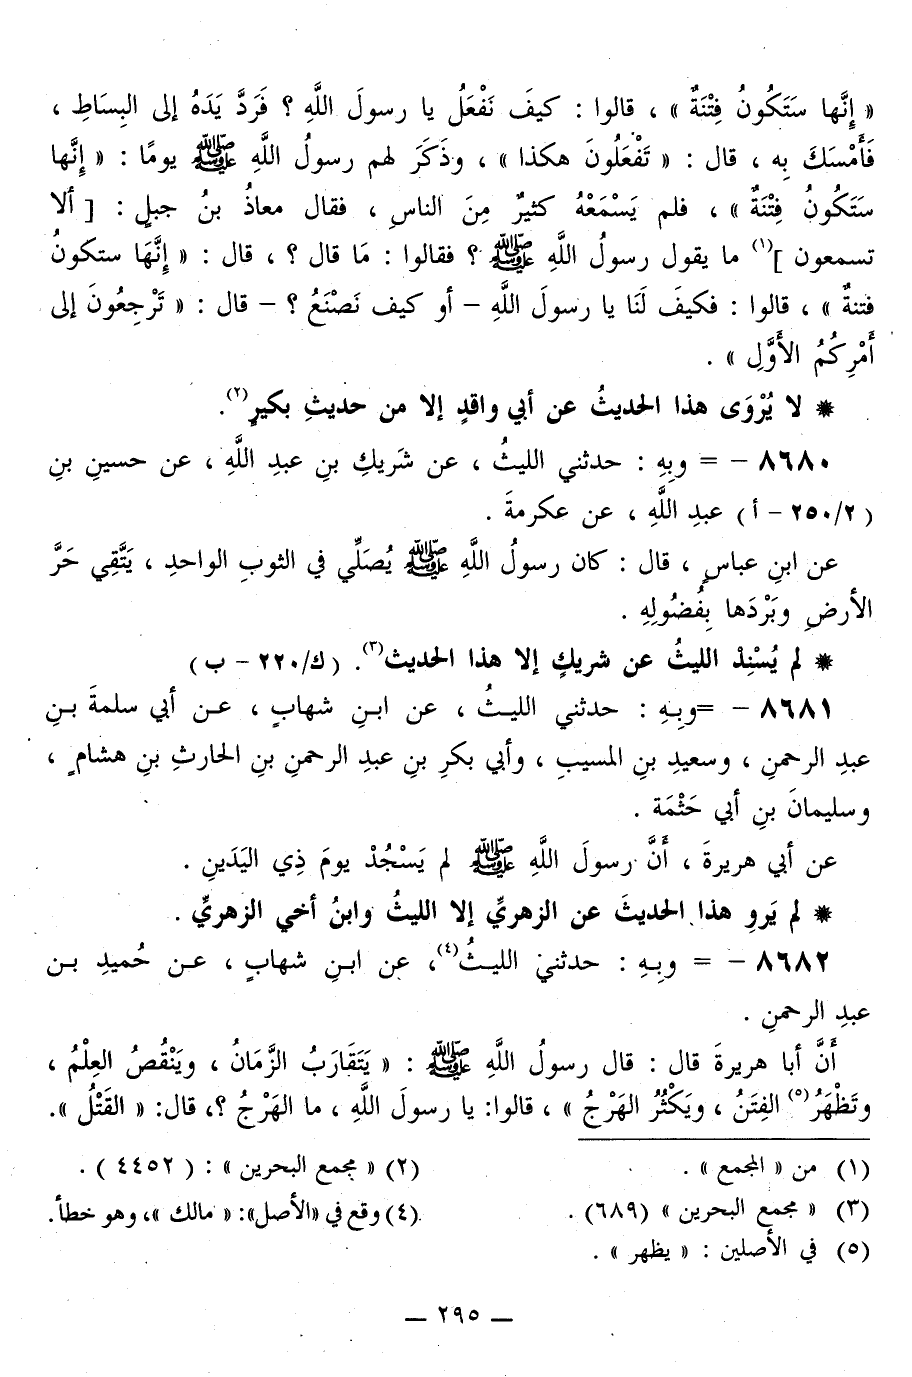 « إِنَّها سَتَكُونُ فِتْنَةٌ » ، قالوا : كيفَ نَفْعَلُ يا رسولَ اللَّهِ ؟ فَرَدَّ يَدَهُ إلى البِسَاطِ ،
فَأَمْسَكَ بِه ، قال : « تَفْعَلُونَ هكذا » ، وذَكَرَ لهم رسولُ اللَّهِ ﷺ يومًا : « إِنَّها
سَتَكُونُ فِتْنَةٌ » ، فلم يَسْمَعْهُ كثيرٌ مِنَ الناسِ ، فقال معاذُ بنُ جبلٍ : [ ألا
تسمعون ](١) ما يقول رسولُ اللَّهِ ﷺ ؟ فقالوا : مَا قال ؟ ، قال : « إِنَّهَا ستكونُ
فتنةٌ » ، قالوا : فكيفَ لَنَا يا رسولَ اللَّهِ – أو كيف نَصْنَعُ ؟ – قال : « تَرْجِعُونَ إلى
أَمْرِكُمُ الأَوَّلِ » .
* لا يُرْوَى هذا الحديثُ عن أبي واقدٍ إلا من حديثِ بكيرٍ(٢).
٨٦٨٠ – = وبِهِ : حدثني الليثُ ، عن شَريكِ بنِ عبدِ اللَّهِ ، عن حسينِ بنِ
( ٢٥٠/٢ – أ ) عبدِ اللَّهِ ، عن عكرمةَ .
عن ابنِ عباسٍ ، قال : كان رسولُ اللَّهِ ﷺ يُصَلِّي في الثوبِ الواحدِ ، يَتَّقِي حَرَّ
الأرضِ وبَرْدَها بِفُضُولِهِ .
* لم يُسْنِدْ الليثُ عن شريكٍ إلا هذا الحديث(٣). ( ك/٢٢٠ – ب )
٨٦٨١ – =وبِـهِ : حدثني الليـثُ ، عن ابـنِ شهابٍ ، عـن أبي سلمةَ بـنِ
عبدِ الرحمنِ ، وسعيدِ بنِ المسيبِ ، وأبي بكرِ بنِ عبدِ الرحمنِ بنِ الحارثِ بنِ هشامٍ ،
وسليمانَ بنِ أبي حَثْمَة .
عن أبي هريرةَ ، أَنَّ رسولَ اللَّهِ ﷺ لم يَسْجُدْ يومَ ذِي اليَدَينِ .
* لم يَروِ هذا الحديثَ عن الزهريِّ إلا الليثُ وابنُ أخي الزهريِّ .
٨٦٨٢ – = وبِـهِ : حدثني الليـثُ(٤)، عن ابـنِ شهابٍ ، عـن حُميدِ بـن
عبدِ الرحمنِ .
أَنَّ أبا هريرةَ قال : قال رسولُ اللَّهِ ﷺ : « يَتَقَارَبُ الزَّمَانُ ، ويَنْقُصُ العِلْمُ ،
وتَظْهَرُ(٥) الفِتَنُ ، ويَكْثُرُ الهَرْجُ » ، قالوا: يا رسولَ اللَّهِ ، ما الهَرْجُ ؟، قال: « القَتْلُ ».
(١) من « المجمع » .
(٢) « مجمع البحرين » : ( ٤٤٥٢ ) .
(٣) « مجمع البحرين » (٦٨٩) .
(٤) وقع في «الأصل»: « مالك »، وهو خطأ.
(٥) في الأصلين : « يظهر » .
— ٢٩٥ —